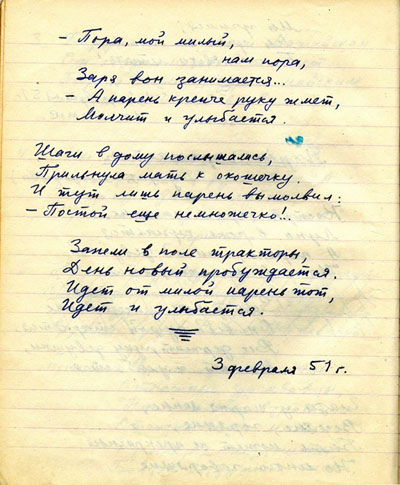 - Пора, мой милый,
нам пора,
Заря вон занимается...
- А парень крепче руку жмет,
Молчит и улыбается.
Шаги в дому послышались,
Прильнула мать к окошечку.
И тут лишь парень вымолвил:
- Постой еще немножечко!..
Запели в поле тракторы,
День новый пробуждается.
Идет от милой парень тот,
Идет и улыбается.
3 февраля 51 г.